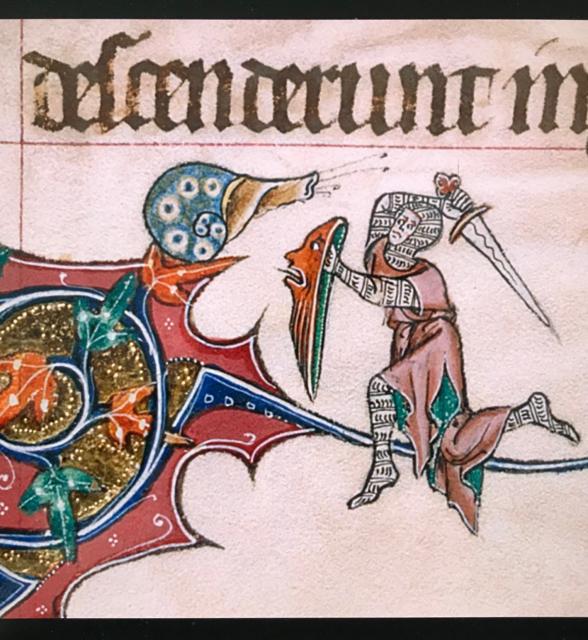 descenderunt in